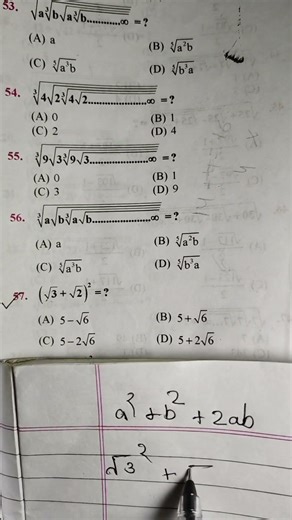 53. √a∛b√a∛b............∞ = ?
(A) a
(B) ⁵√a²b
(C) ⁵√a³b
(D) ⁵√b³a
54. ∛4√2∛4√2.................∞ = ?
(A) 0
(B) 1
(C) 2
(D) 4
55. ∛9√3∛9√3.................∞ = ?
(A) 0
(B) 1
(C) 3
(D) 9
56. ∛a√b∛a√b.................∞ = ?
(A) a
(B) ⁵√a²b
(C) ⁵√a³b
(D) ⁵√b³a
57. (√3 + √2)² = ?
(A) 5 – √6
(B) 5 + √6
(C) 5 – 2√6
(D) 5 + 2√6
a² + b² + 2ab
√3² + √